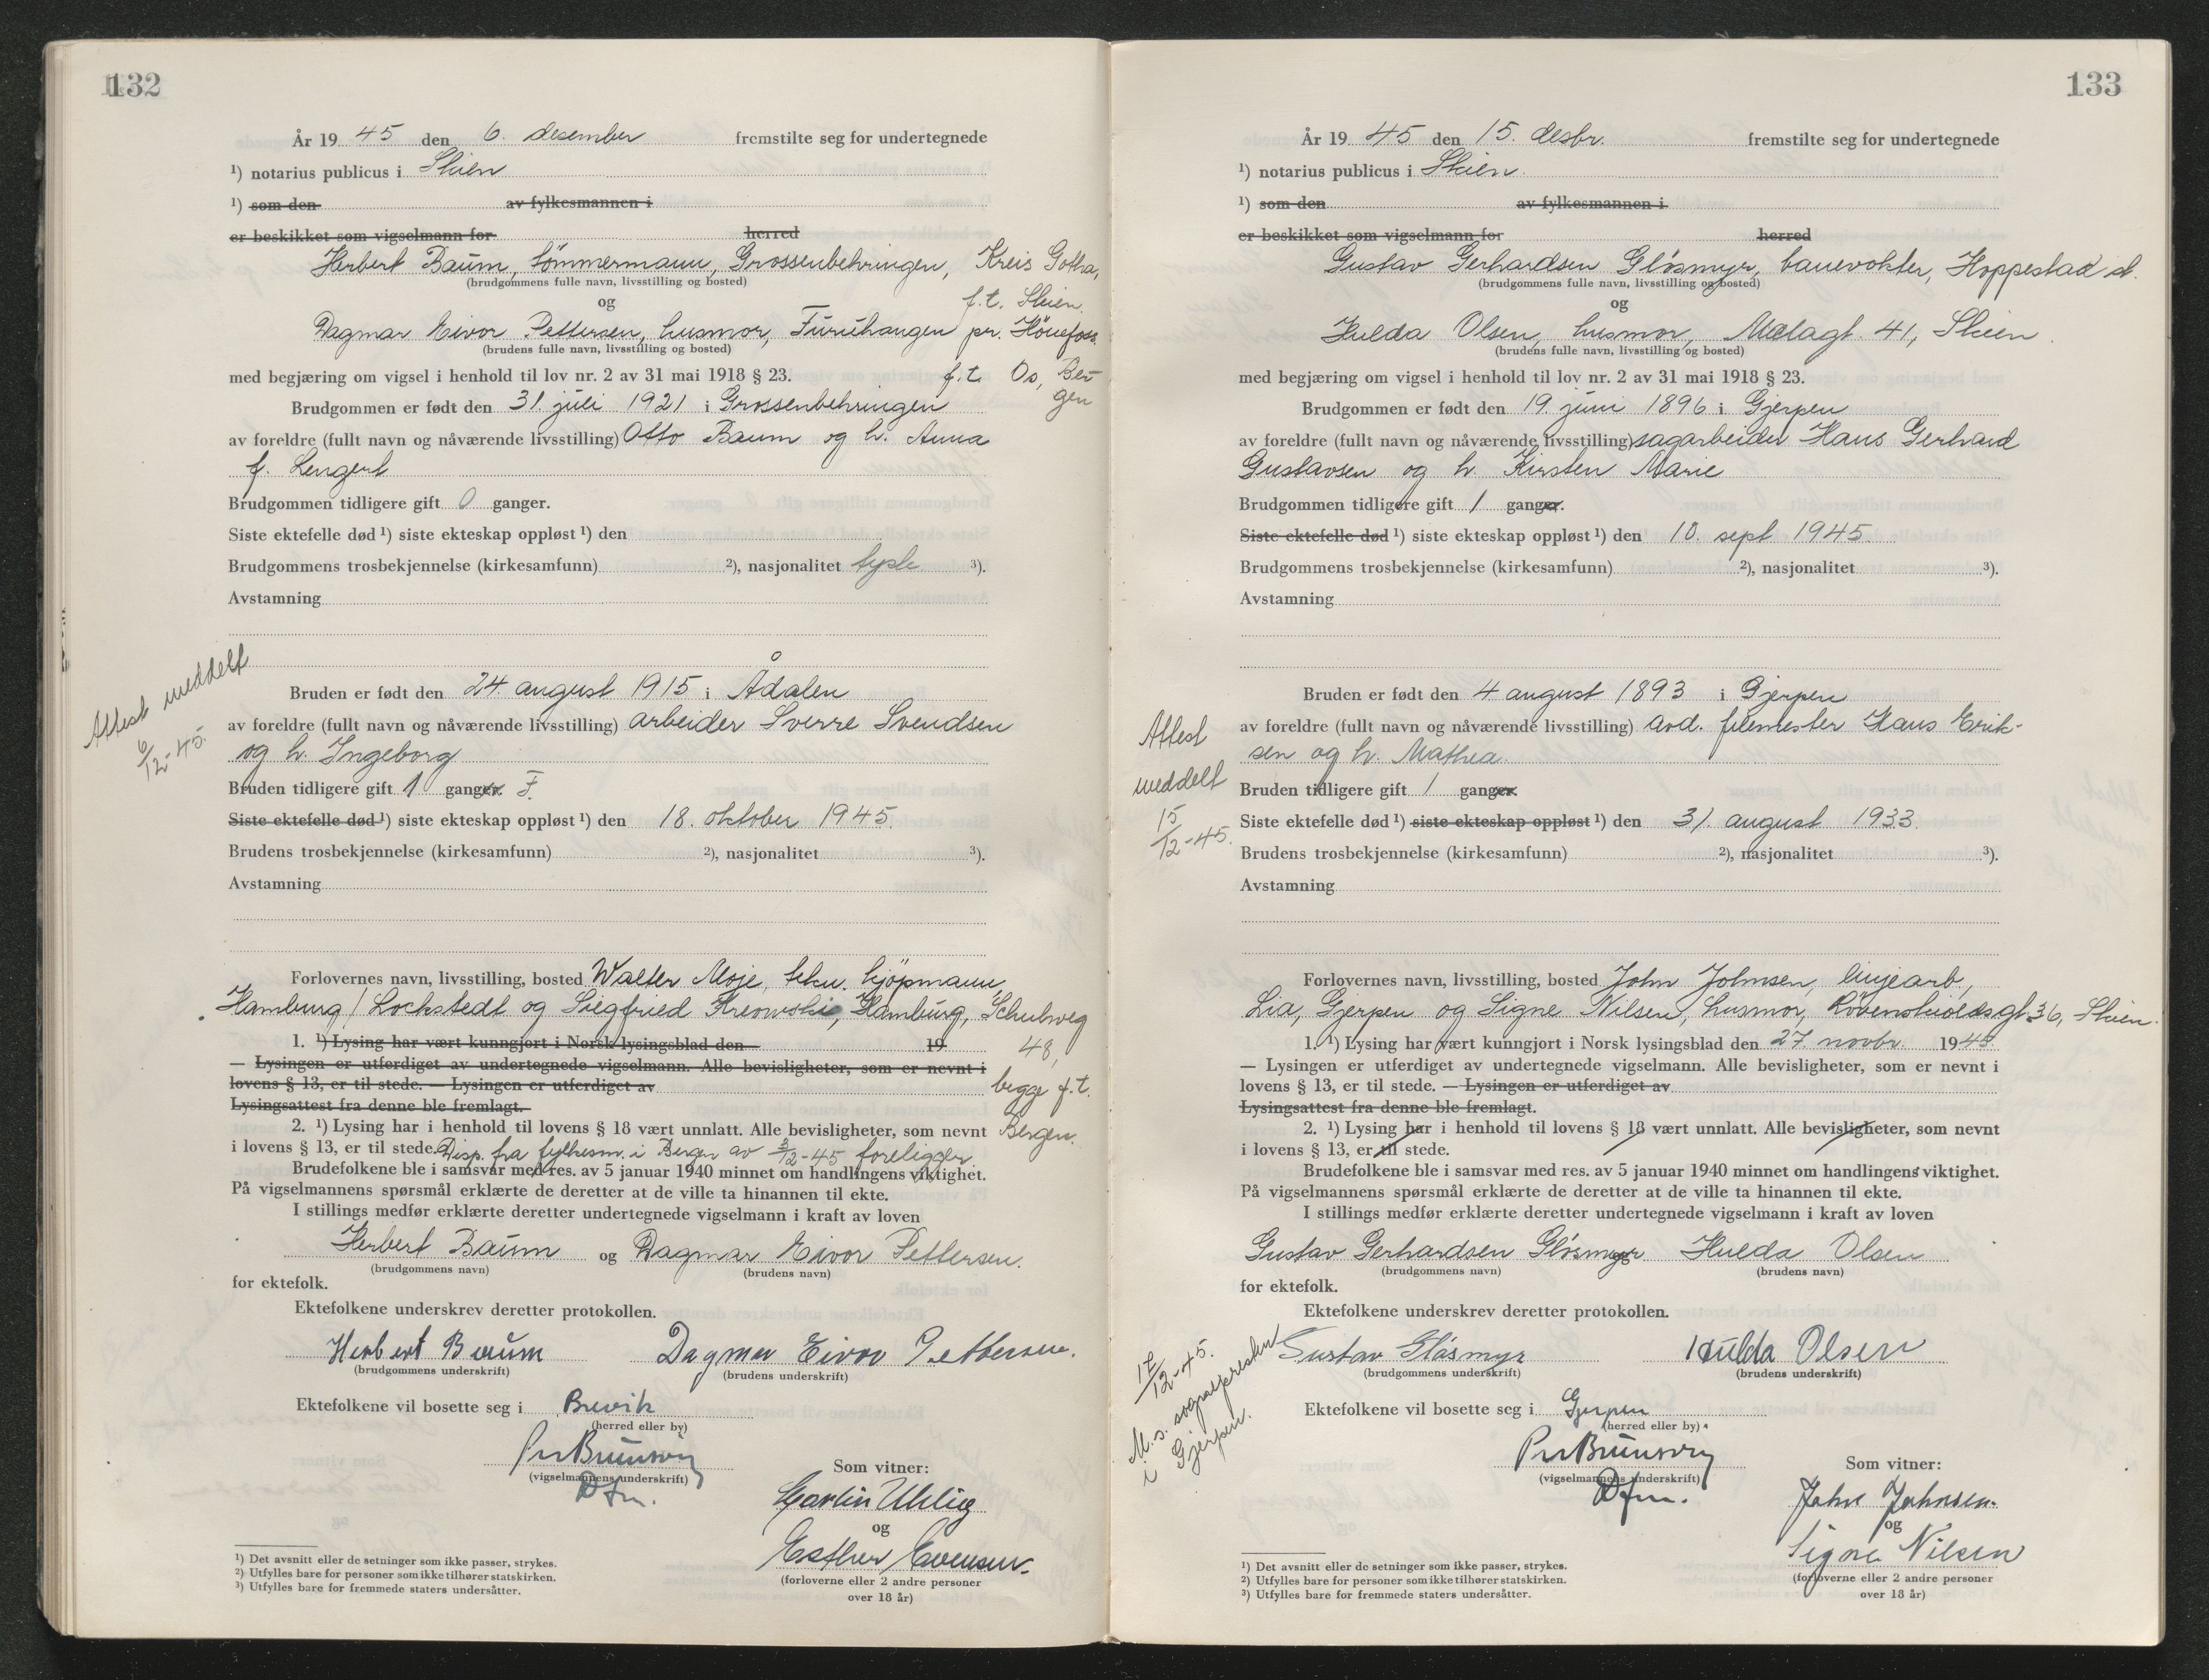 132
År 19 45 den 6. desember fremstilte seg for undertegnede
¹) notarius publicus i Skien
¹) som den av fylkesmannen i
er beskikket som vigselmann for herred
Herbert Baum, tömmermann, Grossenbehringen, Kreis Gotha,
(brudgommens fulle navn, livsstilling og bosted)
f.t. Skien.
og
Dagmar Eivor Pettersen, husmor, Furuhaugen pr. Hönefoss
(brudens fulle navn, livsstilling og bosted)
med begjæring om vigsel i henhold til lov nr. 2 av 31 mai 1918 § 23. f.t. Os, Ber-
gen
Brudgommen er født den 31. juli 1921 i Grossenbehringen
av foreldre (fullt navn og nåværende livsstilling) Otto Baum og h. Anna
f. Lengert
Brudgommen tidligere gift 0 ganger.
Siste ektefelle død ¹) siste ekteskap oppløst ¹) den
Brudgommens trosbekjennelse (kirkesamfunn) ²), nasjonalitet tysk ³).
Avstamning
Attest meddelt
6/12-45.
Bruden er født den 24 august 1915 i Ådalen
av foreldre (fullt navn og nåværende livsstilling) arbeider Sverre Svendsen
og h. Ingeborg
Bruden tidligere gift 1 ganger. F.
Siste ektefelle død ¹) siste ekteskap oppløst ¹) den 18. oktober 1945.
Brudens trosbekjennelse (kirkesamfunn) ²), nasjonalitet ³).
Avstamning
Forlovernes navn, livsstilling, bosted Walter Moje, tekn. kjöpmann,
Hamburg/Lockstedt og Siegfried Hamburg, Schulweg
1. ¹) Lysing har vært kunngjort i Norsk lysingsblad den 19 48,
— Lysingen er utferdiget av undertegnede vigselmann. Alle bevisligheter, som er nevnt i
lovens § 13, er til stede. — Lysingen er utferdiget av begge f.t.
Lysingsattest fra denne ble fremlagt.
2. ¹) Lysing har i henhold til lovens § 18 vært unnlatt. Alle bevisligheter, som nevnt Bergen.
i lovens § 13, er til stede. Disp. fra fylkesm. i Bergen av 3/12-45 foreligger.
Brudefolkene ble i samsvar med res. av 5 januar 1940 minnet om handlingens viktighet.
På vigselmannens spørsmål erklærte de deretter at de ville ta hinannen til ekte.
I stillings medfør erklærte deretter undertegnede vigselmann i kraft av loven
Herbert Baum og Dagmar Eivor Pettersen.
(brudgommens navn) (brudens navn)
for ektefolk.
Ektefolkene underskrev deretter protokollen.
Herbert Baum Dagmar Eivor Pettersen.
(brudgommens underskrift) (brudens underskrift)
Ektefolkene vil bosette seg i Brevik
(herred eller by)
(vigselmannens underskrift) Som vitner:
Dfm.
Martin Uhlig
og
Esther Evensen.
(forloverne eller 2 andre personer
over 18 år)
¹) Det avsnitt eller de setninger som ikke passer, strykes.
²) Utfylles bare for personer som ikke tilhører statskirken.
³) Utfylles bare for fremmede staters undersåtter.
133
År 19 45 den 15. desbr. fremstilte seg for undertegnede
¹) notarius publicus i Skien
¹) som den av fylkesmannen i
er beskikket som vigselmann for herred
Gustav Gerhardsen Glósmyr, banevokter, Hoppestad st.
(brudgommens fulle navn, livsstilling og bosted)
og
Hulda Olsen, husmor, Mælagt. 41, Skien
(brudens fulle navn, livsstilling og bosted)
med begjæring om vigsel i henhold til lov nr. 2 av 31 mai 1918 § 23.
Brudgommen er født den 19. juni 1896 i Gjerpen
av foreldre (fullt navn og nåværende livsstilling) sagarbeider Hans Gerhard
Gustavsen og h. Kirsten Marie
Brudgommen tidligere gift 1 ganger.
Siste ektefelle død ¹) siste ekteskap oppløst ¹) den 10. sept 1945.
Brudgommens trosbekjennelse (kirkesamfunn) ²), nasjonalitet ³).
Avstamning
Attest
meddelt
15/12-45.
Bruden er født den 4 august 1893 i Gjerpen
av foreldre (fullt navn og nåværende livsstilling) avd. filemester Hans Erik-
sen og h. Mathea.
Bruden tidligere gift 1 ganger.
Siste ektefelle død ¹) siste ekteskap oppløst ¹) den 31. august 1933.
Brudens trosbekjennelse (kirkesamfunn) ²), nasjonalitet ³).
Avstamning
Forlovernes navn, livsstilling, bosted John Johnsen, linjearb,
Lia, Gjerpen og Signe Nilsen, husmor, Rövenskioldsgt. 36, Skien.
1. ¹) Lysing har vært kunngjort i Norsk lysingsblad den 27. novbr. 1945.
— Lysingen er utferdiget av undertegnede vigselmann. Alle bevisligheter, som er nevnt i
lovens § 13, er til stede. — Lysingen er utferdiget av
Lysingsattest fra denne ble fremlagt.
2. ¹) Lysing har i henhold til lovens § 18 vært unnlatt. Alle bevisligheter, som nevnt
i lovens § 13, er til stede.
Brudefolkene ble i samsvar med res. av 5 januar 1940 minnet om handlingens viktighet.
På vigselmannens spørsmål erklærte de deretter at de ville ta hinannen til ekte.
I stillings medfør erklærte deretter undertegnede vigselmann i kraft av loven
Gustav Gerhardsen Glósmyr Hulda Olsen
(brudgommens navn) (brudens navn)
for ektefolk.
Ektefolkene underskrev deretter protokollen.
Gustav Glósmyr Hulda Olsen
(brudgommens underskrift) (brudens underskrift)
17/12-45.
M. s. sognepresten
i Gjerpen.
Ektefolkene vil bosette seg i Gjerpen
(herred eller by)
(vigselmannens underskrift) Som vitner:
Dfm.
John Johnsen.
og
Signe Nilsen
(forloverne eller 2 andre personer
over 18 år)
¹) Det avsnitt eller de setninger som ikke passer, strykes.
²) Utfylles bare for personer som ikke tilhører statskirken.
³) Utfylles bare for fremmede staters undersåtter.